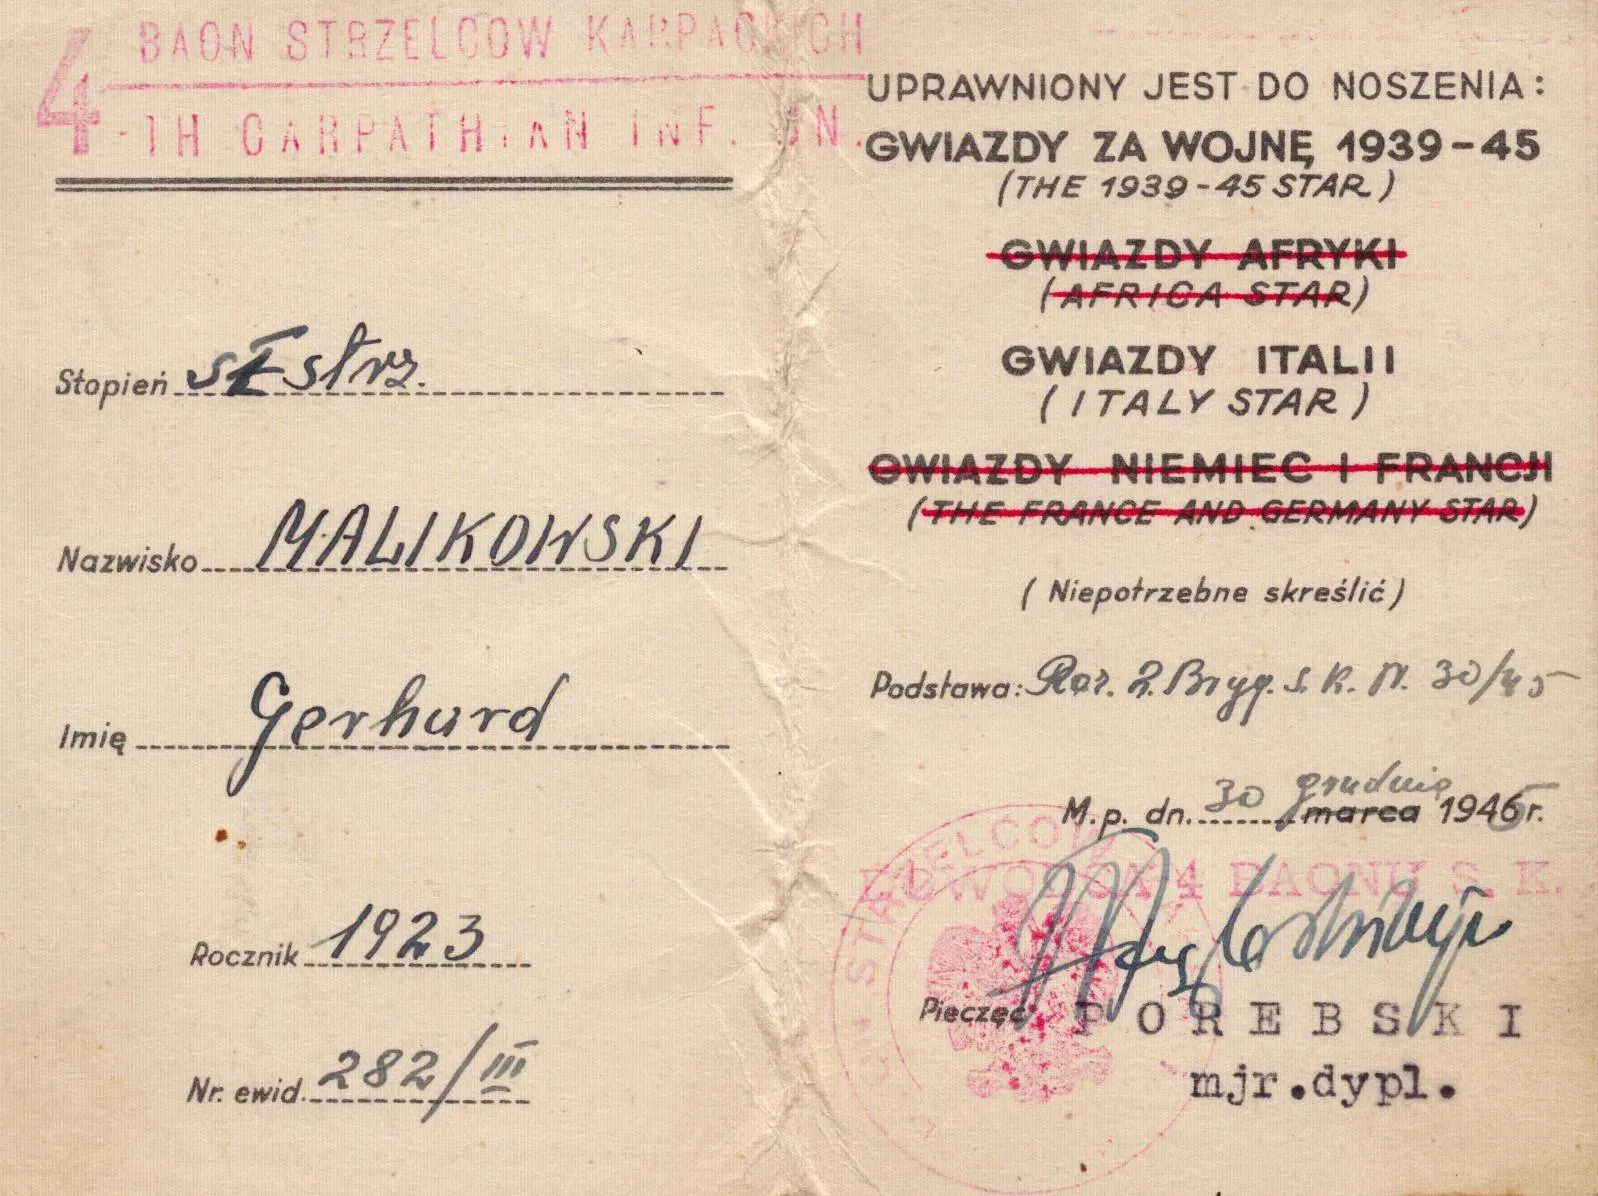 4 BAON STRZELCOW KARPACKICH
-TH CARPATHIAN INF. BN.
Stopień st strz.
Nazwisko MALIKOWSKI
Imię Gerhard
Rocznik 1923
Nr. ewid. 282/III
UPRAWNIONY JEST DO NOSZENIA:
GWIAZDY ZA WOJNĘ 1939-45
(THE 1939-45 STAR)
GWIAZDY AFRYKI
(AFRICA STAR)
GWIAZDY ITALII
(ITALY STAR)
GWIAZDY NIEMIEC I FRANCJI
(THE FRANCE AND GERMANY STAR)
(Niepotrzebne skreślić)
Podstawa: Roz. 2. Bryg. S. K. N. 30/45
grudnia
M.p. dn. 30 marca 1945 r.
DOWODCA 4 BAONU S. K.
STRZELCOW
Pieczęć POREBSKI
mjr.dypl.